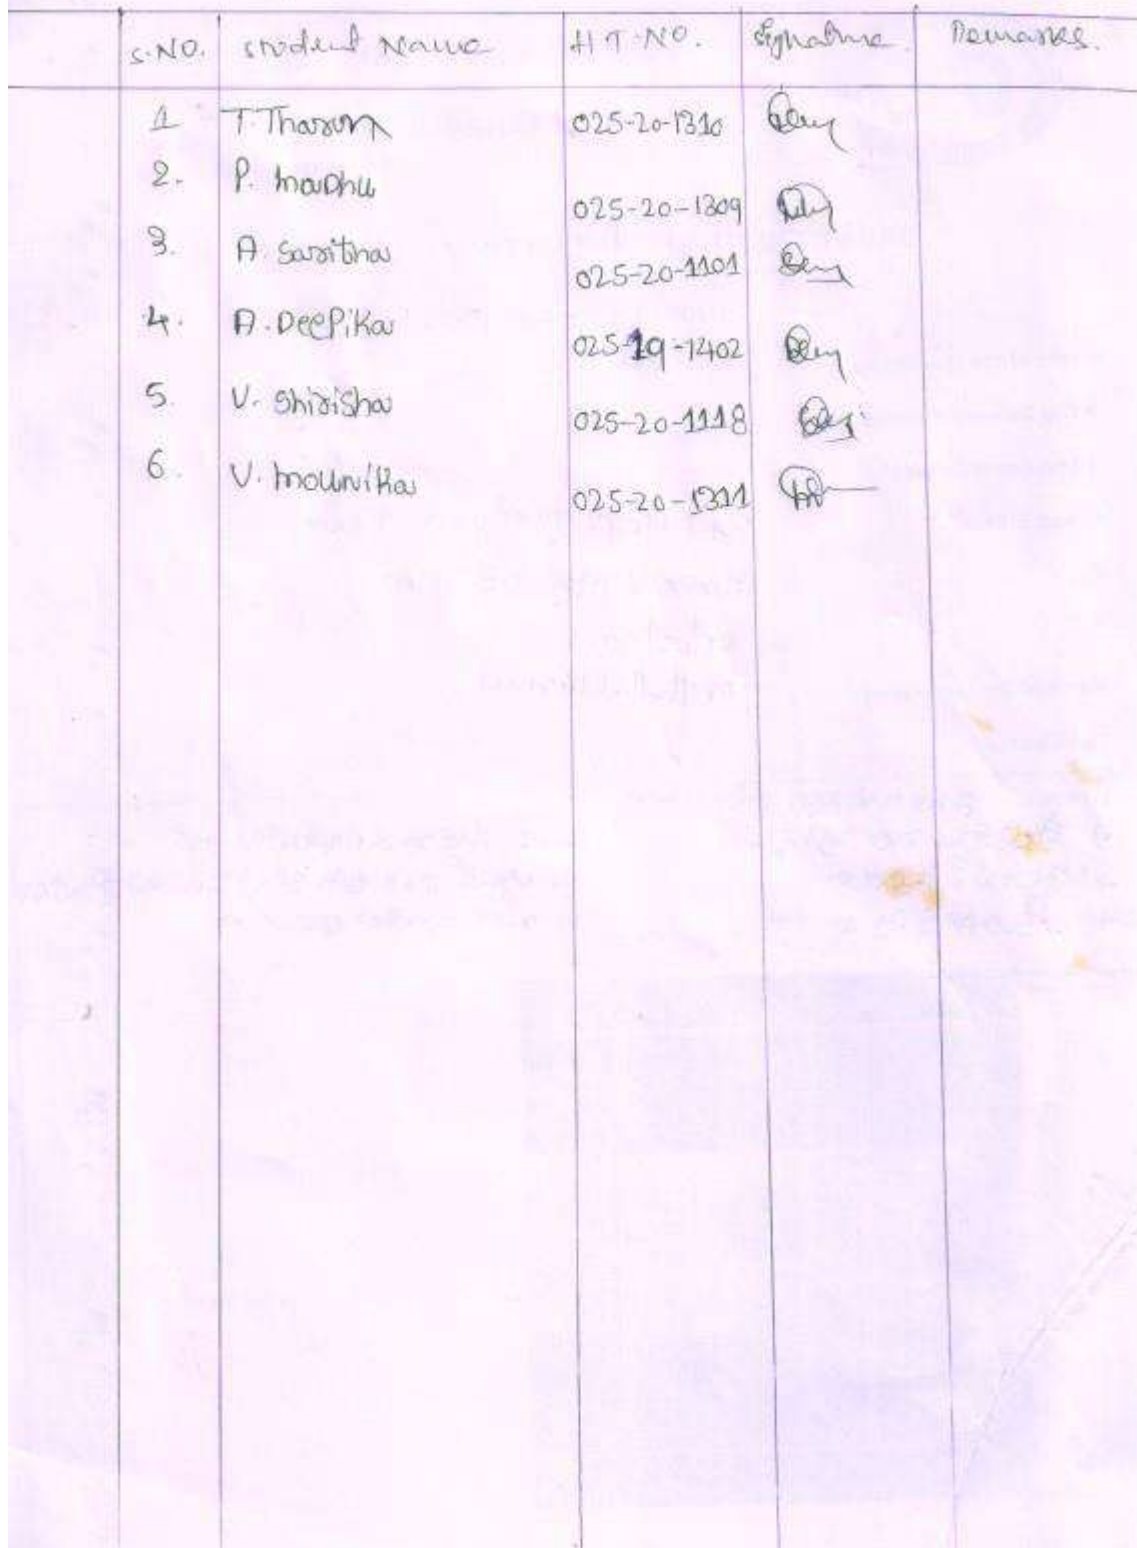 S.NO. Student Name H T. NO. Signature Remarks.
1 T. Tharun 025-20-1310
2. P. Madhu 025-20-1309
3. A. Saritha 025-20-1101
4. A. Deepika 025-19-1402
5. V. Shirisha 025-20-1118
6. V. Mounika 025-20-1311